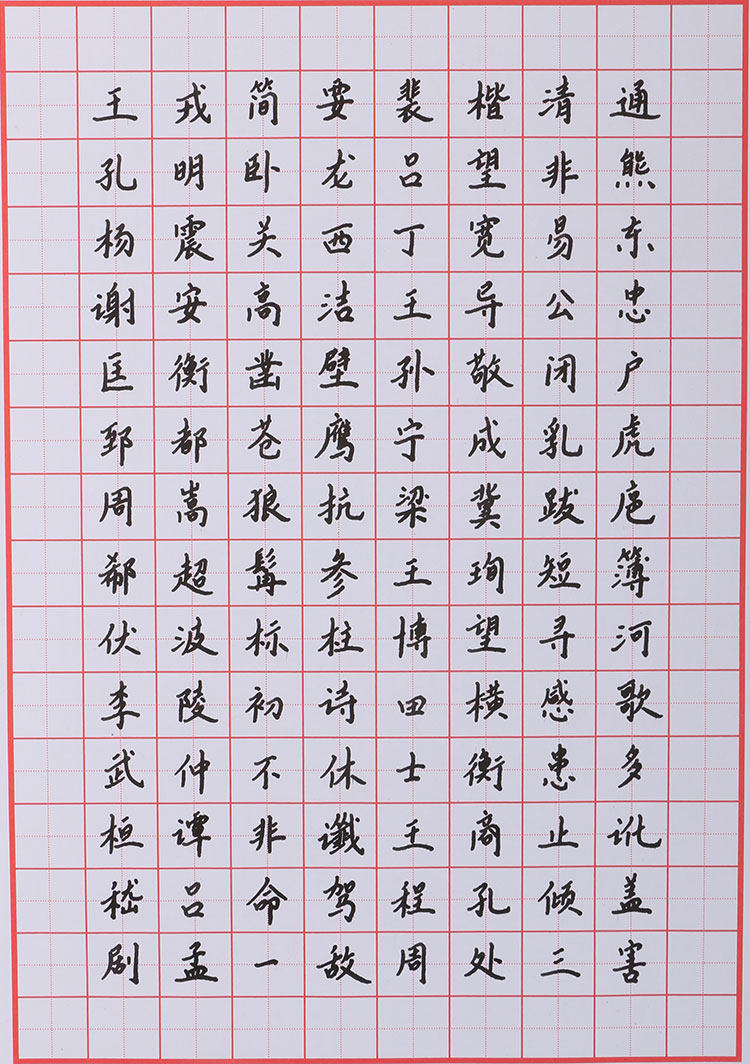 王戎简要裴楷清通
孔明卧龙吕望非熊
杨震关西丁宽易东
谢安高洁王导公忠
匡衡凿壁孙敬闭户
郅都苍鹰宁成乳虎
周嵩狼抗梁冀跋扈
郗超髯参王珣短簿
伏波标柱博望寻河
李陵初诗田横感歌
武仲不休士衡患多
桓谭非谶王商止讹
嵇吕命驾程孔倾盖
剧孟一敌周处三害